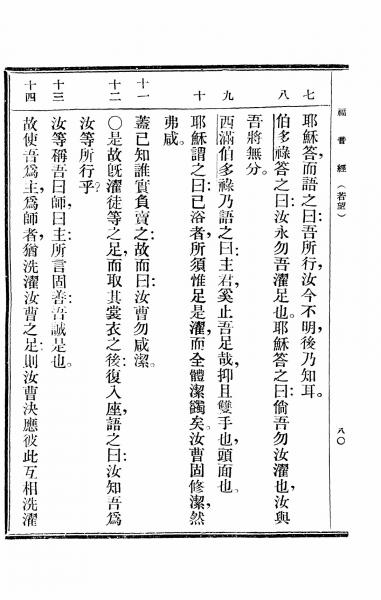 福音經（若望）
八〇
七 耶穌答,而語之曰:吾所行,汝今不明,後乃知耳。
八 伯多祿答之曰:汝永勿吾濯足也。耶穌答之曰:倘吾勿汝濯也,汝與
吾將無分。
九 西滿伯多祿乃語之曰:主君,奚止吾足哉,抑且雙手也,頭面也。
十 耶穌謂之曰:已浴者,所須惟足是濯,而全體潔蠲矣。汝曹固修潔,然
弗咸。
十一 蓋已知誰實負賣之:故而曰:汝曹勿咸潔。
十二 〇是故旣濯徒等之足,而取其裳衣之後:復入座,語之曰:汝知吾爲
汝等所行乎?
十三 汝等稱吾曰師,曰主,所言固善:吾誠是也。
十四 故使吾爲主,爲師者,猶洗濯汝曹之足:則汝曹決應彼此互相洗濯